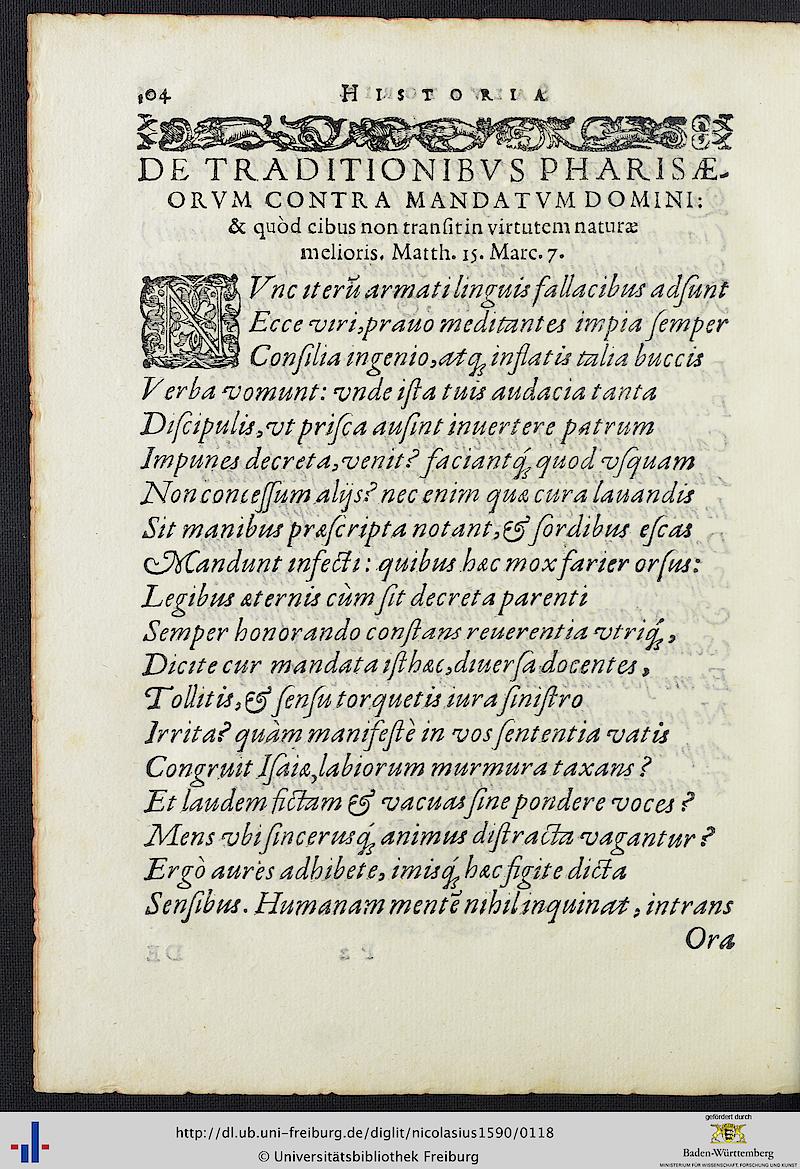 104 HISTORIA
DE TRADITIONIBVS PHARISÆ-
ORVM CONTRA MANDATVM DOMINI:
& quòd cibus non tranſit in virtutem naturæ
melioris. Matth. 15. Marc. 7.
NVnc iterū armati linguis fallacibus adſunt
Ecce viri, prauo meditantes impia ſemper
Conſilia ingenio, atq; inflatis talia buccis
Verba vomunt: vnde iſta tuis audacia tanta
Diſcipulis, vt priſca auſint inuertere patrum
Impunes decreta, venit? faciantq́; quod vſquam
Non conceſſum alijs? nec enim quæ cura lauandis
Sit manibus præſcripta notant, & ſordibus eſcas
Mandunt infecti: quibus hæc mox farier orſus:
Legibus æternis cùm ſit decreta parenti
Semper honorando conſtans reuerentia vtriq́;,
Dicite cur mandata iſthæc, diuerſa docentes,
Tollitis, & ſenſu torquetis iura ſiniſtro
Irrita? quàm manifeſtè in vos ſententia vatis
Congruit Iſaiæ, labiorum murmura taxans?
Et laudem fictam & vacuas ſine pondere voces?
Mens vbi ſincerusq́; animus diſtracta vagantur?
Ergò aures adhibete, imisq́; hæc figite dicta
Senſibus. Humanam mentē nihil inquinat, intrans
Ora
http://dl.ub.uni-freiburg.de/diglit/nicolasius1590/0118
© Universitätsbibliothek Freiburg
gefördert durch
Baden-Württemberg
MINISTERIUM FÜR WISSENSCHAFT, FORSCHUNG UND KUNST